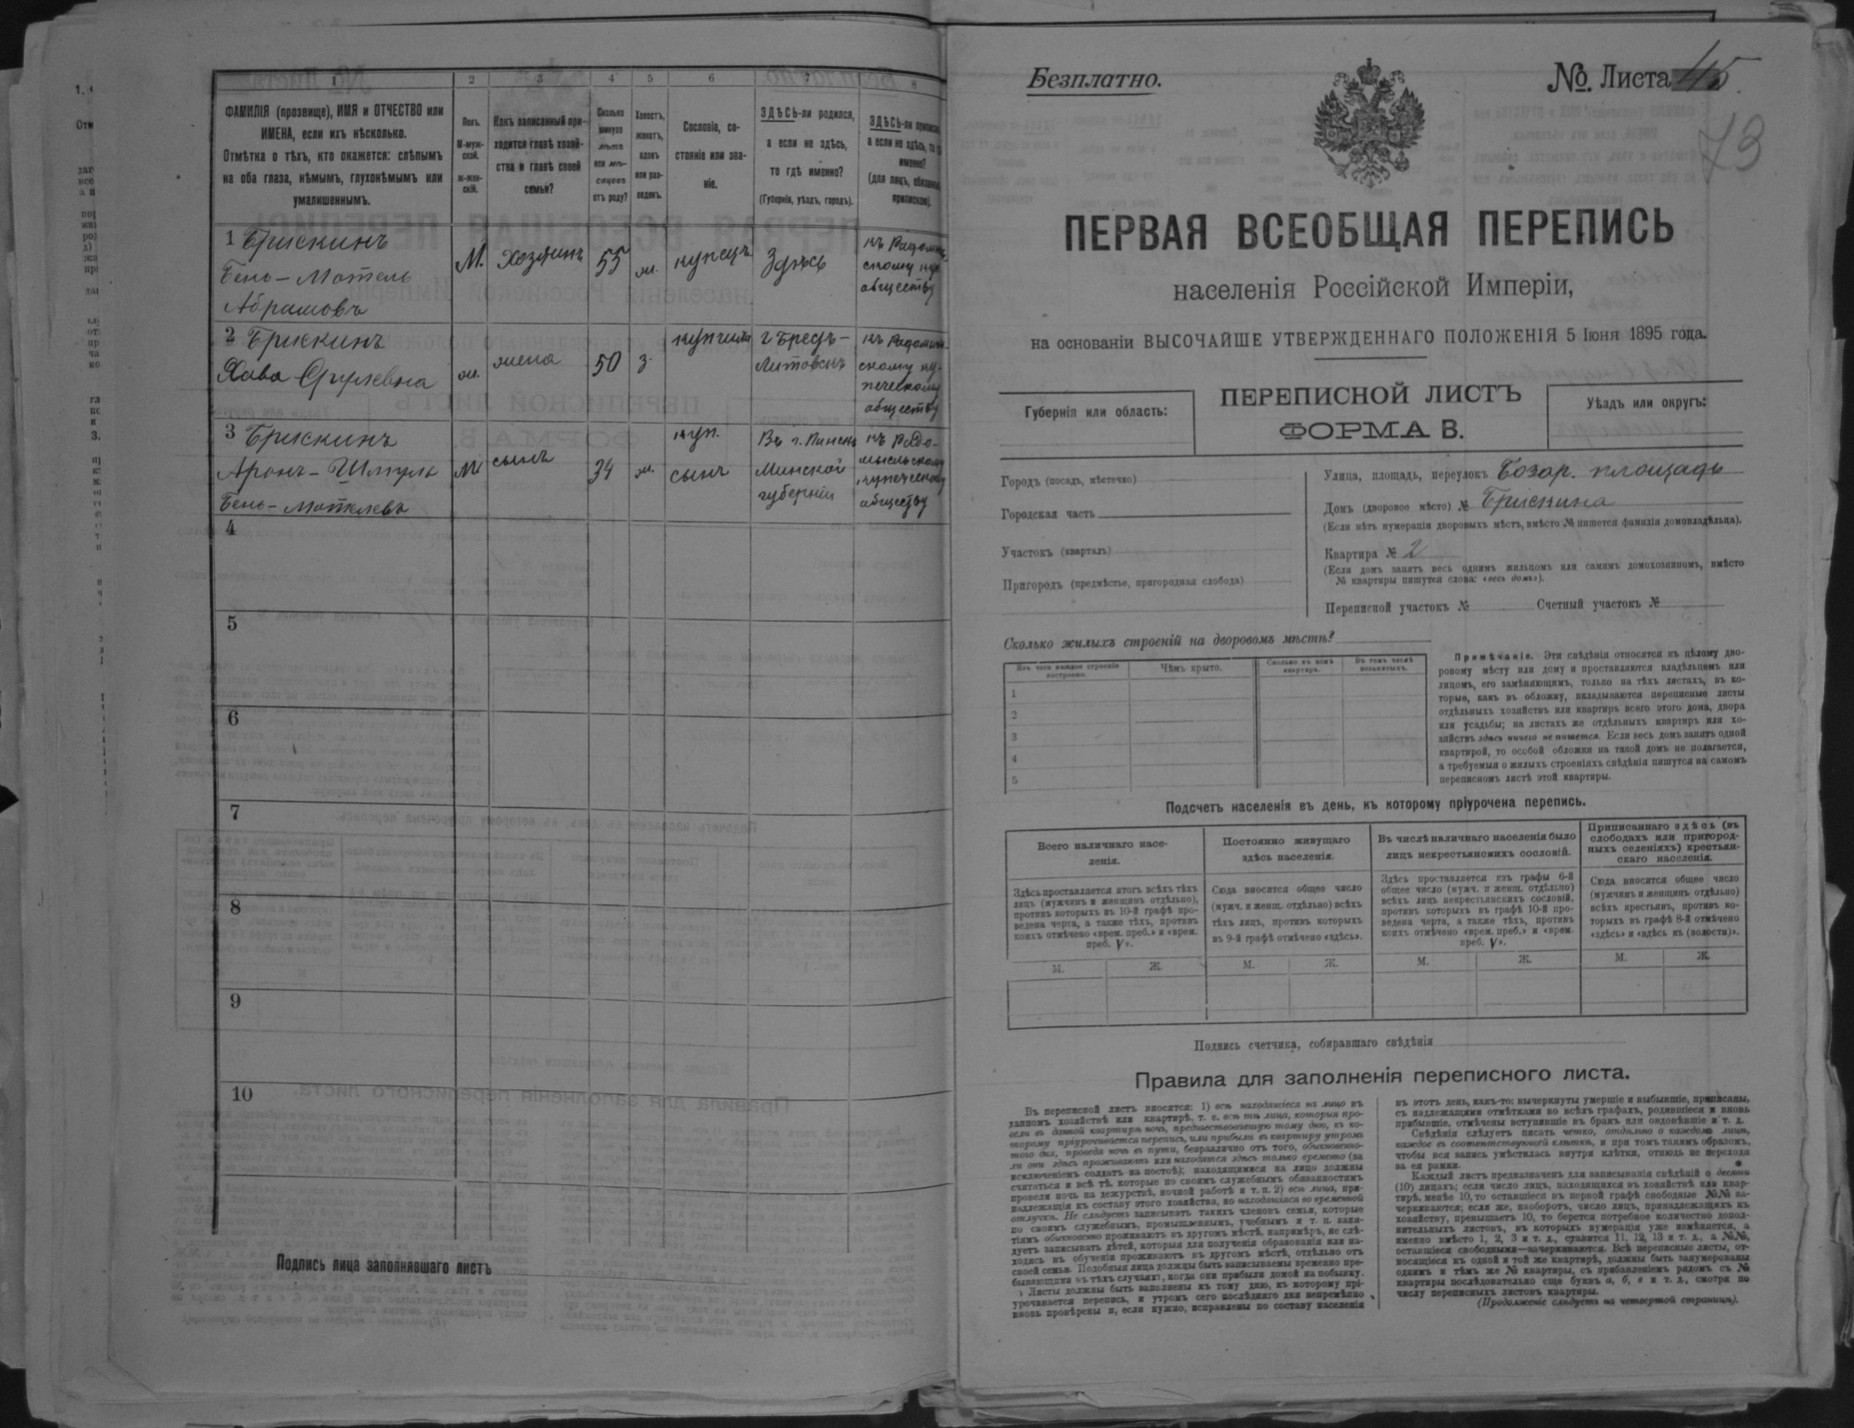 1 2 3 4 5 6 7 8
ФАМИЛІЯ (прозвище), ИМЯ и ОТЧЕСТВО или
ИМЕНА, если ихъ нѣсколько.
Отмѣтка о тѣхъ, кто окажется: слѣпымъ
на оба глаза, нѣмымъ, глухонѣмымъ или
умалишеннымъ.
Полъ.
М-муж-
ской.
ж-жен-
скій.
Какъ записанный при-
ходится главѣ хозяй-
ства и главѣ своей
семьи?
Сколько
минуло
лѣтъ
или мѣ-
сяцевъ
отъ роду?
Холостъ,
женатъ,
вдовъ
или раз-
веденъ.
Сословіе, со-
стояніе или зва-
ніе.
ЗДѢСЬ-ли родился,
а если не здѣсь,
то гдѣ именно?
(Губернія, уѣздъ, городъ).
ЗДѢСЬ-ли приписанъ,
а если не здѣсь, то гдѣ
именно?
(для лицъ, обязанныхъ
припискою).
1 Брискинъ
Бень-Мотель
Абрамовъ
М. Хозяинъ 55 ж. купецъ Здѣсь
обществу
2 Брискинъ
Хава
ж. жена 50 з.
г Брестъ-
Литовскъ
скому ку-
печескому
обществу
3 Брискинъ
Аронъ-Шмуль
Бень-Мотелевъ
М сынъ 34 ж.
куп.
сынъ
Въ г. Пинскѣ
Минской
губерніи
къ Радо-
мысльскому
купеческому
обществу
4
5
6
7
8
9
10
Подпись лица заполнявшаго листъ
Безплатно.
№. Листа 45
73
ПЕРВАЯ ВСЕОБЩАЯ ПЕРЕПИСЬ
населенія Россійской Имперіи,
на основаніи ВЫСОЧАЙШЕ УТВЕРЖДЕННАГО ПОЛОЖЕНІЯ 5 Іюня 1895 года.
Губернія или область:
ПЕРЕПИСНОЙ ЛИСТЪ
ФОРМА В.
Уѣздъ или округъ:
Городъ (посадъ, мѣстечко)
Городская часть
Участокъ (кварталъ)
Пригородъ (предмѣстье, пригородная слобода)
Улица, площадь, переулокъ Базар. площадь
Домъ (дворовое мѣсто) № Брискина
(Если нѣтъ нумераціи дворовыхъ мѣстъ, вмѣсто № пишется фамилія домовладѣльца).
Квартира № 2
(Если домъ занятъ весь однимъ жильцомъ или самимъ домохозяиномъ, вмѣсто
№ квартиры пишутся слова: «весь домъ»).
Переписной участокъ № Счетный участокъ №
Сколько жилыхъ строеній на дворовомъ мѣстѣ?
Изъ чего каждое строеніе
построено.
Чѣмъ крыто.
Сколько въ немъ
квартиръ.
Въ томъ числѣ
незанятыхъ.
1
2
3
4
5
Примѣчаніе. Эти свѣдѣнія относятся къ цѣлому дво-
ровому мѣсту или дому и проставляются владѣльцемъ или
лицомъ, его замѣняющимъ, только на тѣхъ листахъ, въ ко-
торые, какъ въ обложку, вкладываются переписные листы
отдѣльныхъ хозяйствъ или квартиръ всего этого дома, двора
или усадьбы; на листахъ же отдѣльныхъ квартиръ или хо-
зяйствъ здѣсь ничего не пишется. Если весь домъ занятъ одной
квартирой, то особой обложки на такой домъ не полагается,
а требуемыя о жилыхъ строеніяхъ свѣдѣнія пишутся на самомъ
переписномъ листѣ этой квартиры.
Подсчетъ населенія въ день, къ которому пріурочена перепись.
Всего наличнаго насе-
ленія.
Постоянно живущаго
здѣсь населенія.
Въ числѣ наличнаго населенія было
лицъ некрестьянскихъ сословій.
Приписаннаго здѣсь (въ
слободахъ или пригород-
ныхъ селеніяхъ) крестьян-
скаго населенія.
Здѣсь проставляется итогъ всѣхъ тѣхъ
лицъ (мужчинъ и женщинъ отдѣльно),
противъ которыхъ въ 10-й графѣ про-
ведена черта, а также тѣхъ, противъ
коихъ отмѣчено «врем. преб.» и «врем.
преб. V».
Сюда вносится общее число
(мужч. и женщ. отдѣльно) всѣхъ
тѣхъ лицъ, противъ которыхъ
въ 9-й графѣ отмѣчено «здѣсь».
Здѣсь проставляется изъ графы 6-й
общее число (мужч. и женщ. отдѣльно)
всѣхъ лицъ некрестьянскихъ сословій,
противъ которыхъ въ графѣ 10-й про-
ведена черта, а также тѣхъ, противъ
коихъ отмѣчено «врем. преб.» и «врем.
преб. V».
Сюда вносится общее число
(мужчинъ и женщинъ отдѣльно)
всѣхъ крестьянъ, противъ ко-
торыхъ въ графѣ 8-й отмѣчено
«здѣсь» и «здѣсь къ (волости)».
М. Ж. М. Ж. М. Ж. М. Ж.
Подпись счетчика, собиравшаго свѣдѣнія
Правила для заполненія переписного листа.
Въ переписной листъ вносятся: 1) всѣ находящіеся на лицо въ
данномъ хозяйствѣ или квартирѣ, т. е. всѣ тѣ лица, которыя про-
вели въ данной квартирѣ ночь, предшествовавшую тому дню, къ ко-
торому пріурочивается перепись, или прибыли въ квартиру утромъ
того дня, проведя ночь въ пути, безразлично отъ того, обыкновенно-
ли они здѣсь проживаютъ или находятся здѣсь только временно (за
исключеніемъ солдатъ на постоѣ); находящимися на лицо должны
считаться и всѣ тѣ, которые по своимъ служебнымъ обязанностямъ
провели ночь на дежурствѣ, ночной работѣ и т. п. 2) всѣ лица, при-
надлежащія къ составу этого хозяйства, но находящіяся во временной
отлучкѣ. Не слѣдуетъ записывать такихъ членовъ семьи, которые
по своимъ служебнымъ, промышленнымъ, учебнымъ и т. п. заня-
тіямъ обыкновенно проживаютъ въ другомъ мѣстѣ, напримѣръ, не слѣ-
дуетъ записывать дѣтей, которыя для полученія образованія или на-
ходясь въ обученіи проживаютъ въ другомъ мѣстѣ, отдѣльно отъ
своей семьи. Подобныя лица должны быть записываемы временно пре-
бывающими въ тѣхъ случаяхъ, когда они прибыли домой на побывку.
Листы должны быть заполнены къ тому дню, къ которому прі-
урочивается перепись, и утромъ сего послѣдняго дня непремѣнно
вновь провѣрены и, если нужно, исправлены по составу населенія
въ этотъ день, какъ-то: вычеркнуты умершіе и выбывшіе, приписаны,
съ надлежащими отмѣтками во всѣхъ графахъ, родившіеся и вновь
прибывшіе, отмѣчены вступившіе въ бракъ или овдовѣвшіе и т. д.
Свѣдѣнія слѣдуетъ писать четко, отдѣльно о каждомъ лицѣ,
каждое въ соотвѣтствующей клѣткѣ, и при томъ такимъ образомъ,
чтобы вся запись умѣстилась внутри клѣтки, отнюдь не переходя
за ея рамки.
Каждый листъ предназначенъ для записыванія свѣдѣній о десяти
(10) лицахъ; если число лицъ, находящихся въ хозяйствѣ или квар-
тирѣ, менѣе 10, то оставшіеся въ первой графѣ свободные №№ за-
черкиваются; если же, наоборотъ, число лицъ, принадлежащихъ къ
хозяйству, превышаетъ 10, то берется потребное количество допол-
нительныхъ листовъ, въ которыхъ нумерація уже измѣняется, а
именно вмѣсто 1, 2, 3 и т. д., ставится 11, 12, 13 и т. д., а №№,
оставшіеся свободными—зачеркиваются. Всѣ переписные листы, от-
носящіеся къ одной и той же квартирѣ, должны быть занумерованы
однимъ и тѣмъ же № квартиры, съ прибавленіемъ рядомъ съ №
квартиры послѣдовательно еще буквъ а, б, в и т. д., смотря по
числу переписныхъ листовъ квартиры.
(Продолженіе слѣдуетъ на четвертой страницѣ).